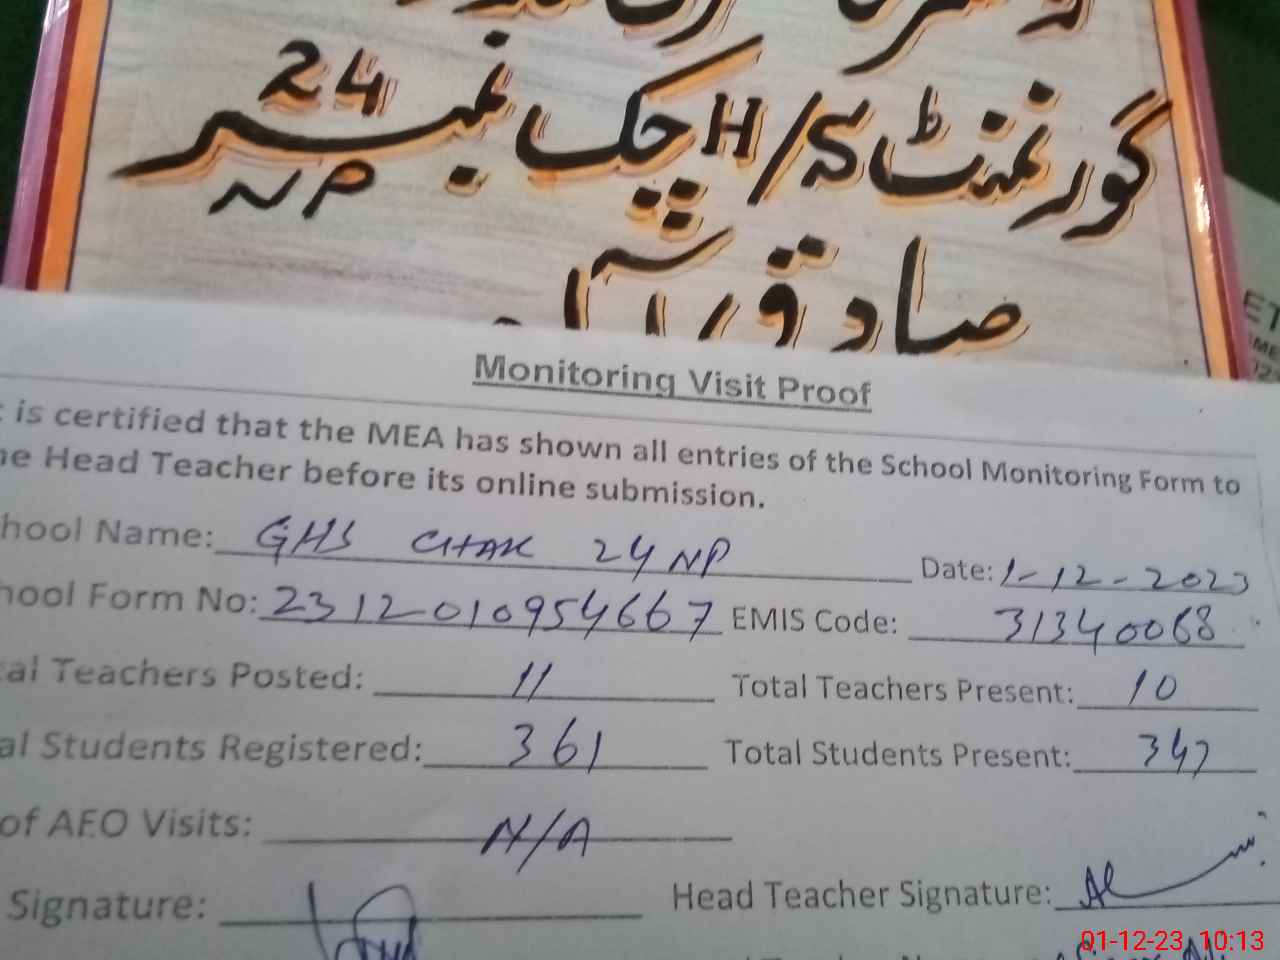 گورنمنٹ H/S چک نمبر 24
NP
صادق آباد
ET
Monitoring Visit Proof
is certified that the MEA has shown all entries of the School Monitoring Form to
he Head Teacher before its online submission.
hool Name: GHS CHAK 24 NP Date: 1-12-2023
hool Form No: 2312010954667 EMIS Code: 31340068
tal Teachers Posted: 11 Total Teachers Present: 10
al Students Registered: 361 Total Students Present: 347
of AEO Visits: N/A
Signature: Head Teacher Signature:
01-12-23 10:13